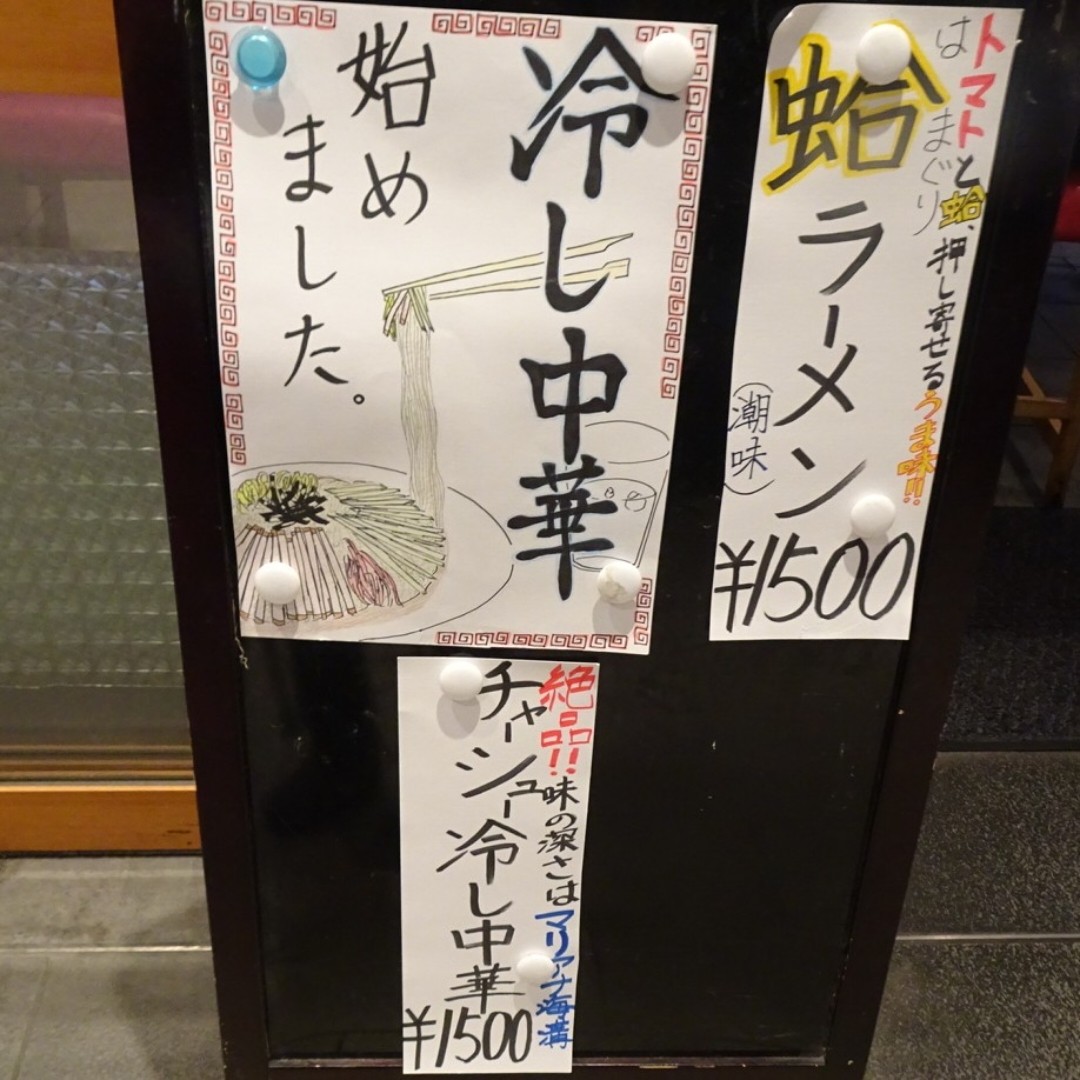 冷し中華
始め
ました。
トマトと蛤、押し寄せるうま味!!
はまぐり
蛤ラーメン
(潮味)
¥1500
絶品!!味の深さはマリアナ海溝
チャーシュー冷し中華
¥1500